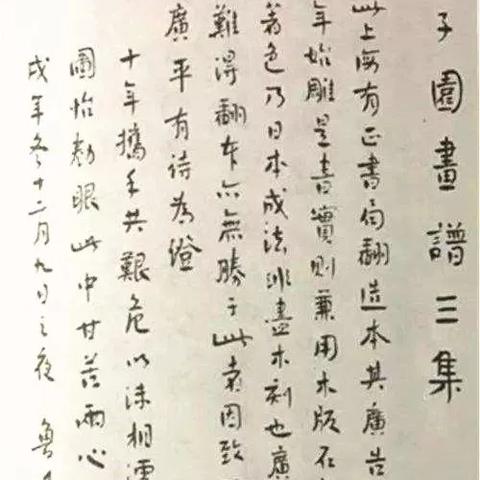 子園畫譜三集
此上海有正書局翻造本其廣告
年始雕是書實則兼用木版石
著色乃日本成法非盡木刻也廣
難得翻本亦無勝于此者因致
廣平有詩為證
十年攜手共艱危以沫相濡
圖怡勌眼此中甘苦兩心
戌年冬十二月九日之夜 魯